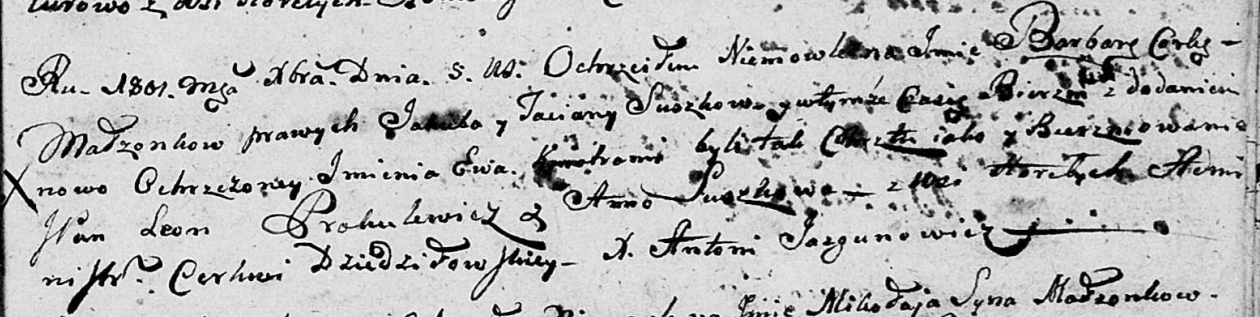 z Wsi Horełych
Ru. 1801. Mca Xbra. Dnia. 5. W. Ochrzciłem Niemowlena Imię Barbarę Corkę
Małżonkow prawych Jakuba y Taciany Suszkow y w tymże Czasię Bierzm z dodaniem
nowo Ochrzczoney Imienia Ewa. Kmotrami byli tak Chrztu iako y Bierzmowania
JPan Leon Prokulewicz z Anno Suszkowa z Wsi Horełych Admi
nistr. Cerkwi Dziedziłowskiey X. Antoni Jazgunowicz
Imię Mikołaja Syna Małżonkow